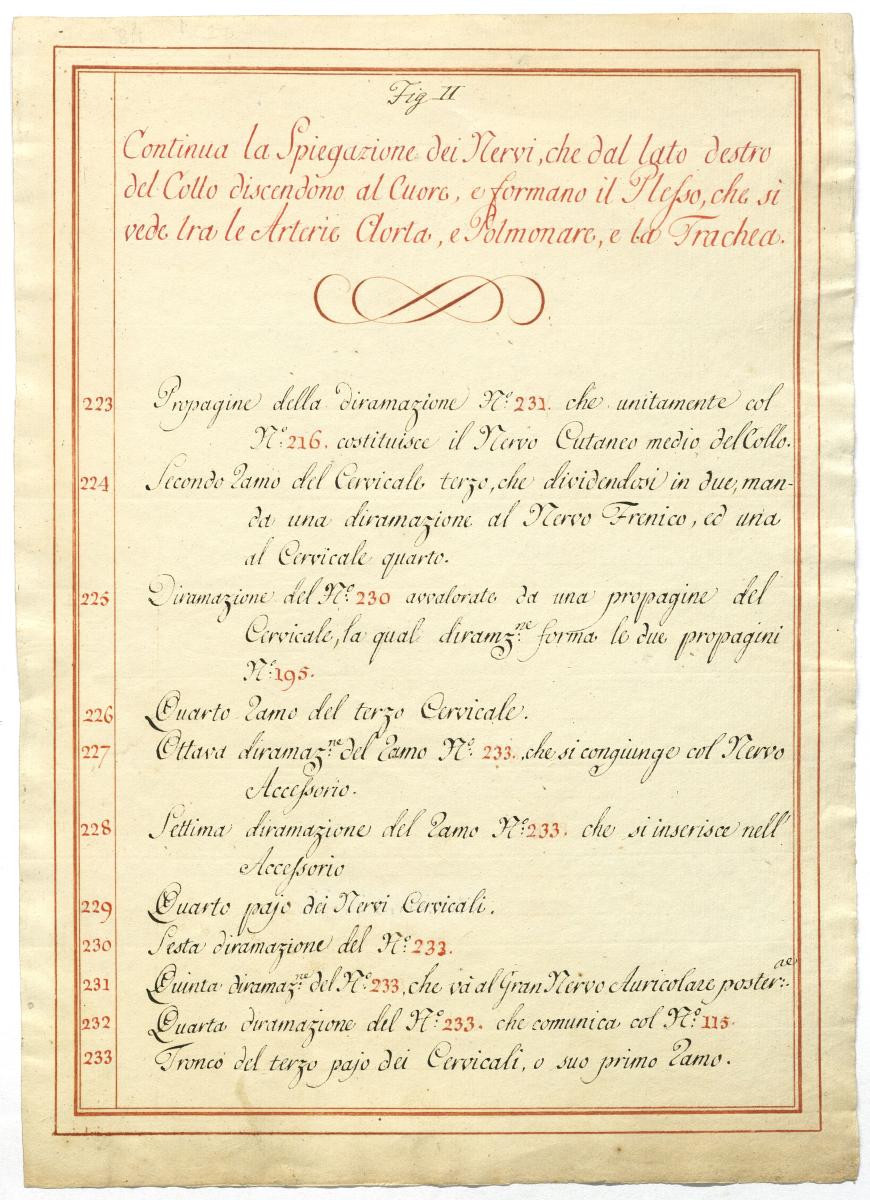 Fig II
Continua la Spiegazione dei Nervi, che dal lato destro
del Collo discendono al Cuore, e formano il Plesso, che si
vede tra le Arterie Aorta, e Polmonare, e la Trachea.
223 Propagine della diramazione N.º 231. che unitamente col
N.º 216. costituisce il Nervo Cutaneo medio del Collo.
224 Secondo Ramo del Cervicale terzo, che dividendosi in due, man-
da una diramazione al Nervo Frenico, ed una
al Cervicale quarto.
225 Diramazione del N.º 230 avvalorate da una propagine del
Cervicale, la qual diramz.ne forma le due propagini
N.º 195.
226 Quarto Ramo del terzo Cervicale.
227 Ottava diramaz.ne del Ramo N.º 233. che si congiunge col Nervo
Accessorio.
228 Settima diramazione del Ramo N.º 233. che si inserisce nell'
Accessorio
229 Quarto pajo dei Nervi Cervicali.
230 Sesta diramazione del N.º 233.
231 Quinta diramaz.ne del N.º 233, che và al Gran Nervo Auricolare poster.re
232 Quarta diramazione del N.º 233. che comunica col N.º 115.
233 Tronco del terzo pajo dei Cervicali, o suo primo Ramo.